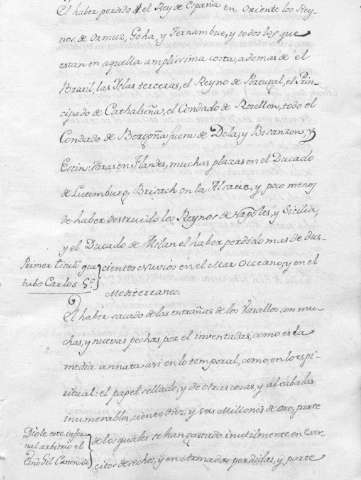 El haber perdido el Rey de España en Oriente los Rey-
nos de Ormuz, Goha, y Fernambuc, y todo lo que
está en aquella amplissima costa, ademas de el
Brazil, las Islas terceras, el Reyno de Portugal, el Prin-
cipado de Cathaluña, el Condado de Rosellon, todo el
Condado de Borgoña fuera de Dola, y Besanzon, y
en Flandes, muchas plazas en el Ducado
de Lutemburg, Brisach en la Alsacia, y poco menos
de haber destruido los Reynos de Napoles, y Sicilia,
y el Ducado de Milan el haber perdido mas de dus-
Primer titulo que
tubo Carlos 5º
cientos Navios en el Mar Occeano, y en el
Mediterraneo.
El haber sacado de las entrañas de los Vasallos con mu-
chas, y nuevas pechas, por el inventadas, como es la
media annata asi en lo temporal, como en lo espi-
ritual: el papel sellado, y de otras cosas, y alcabalas
inumerables, ciento diez, y seis Millones de oro, parte
Diole este infer-
nal arbitrio el
de los quales se han gastado inutilmente en Exer-
citos deshechos, y en armadas perdidas, y parte